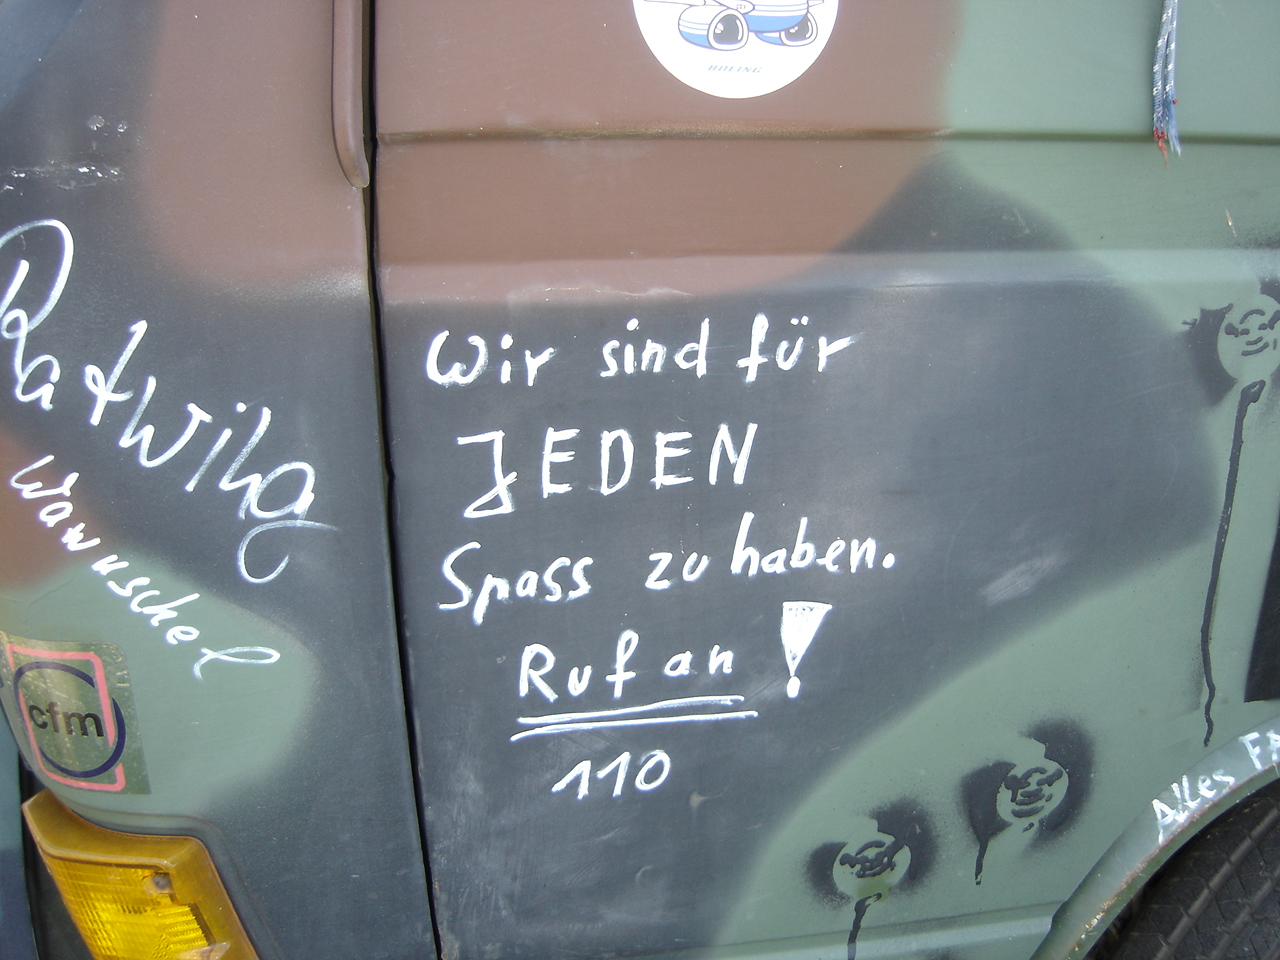 BOEING
Wir sind für
JEDEN
Spass zu haben.
Ruf an !
110
Wawuschel
cfm
Alles